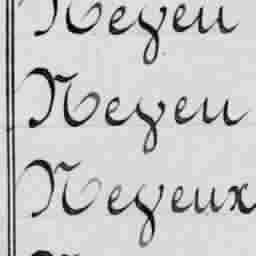 Neyeu
Neyeu
Neyeux